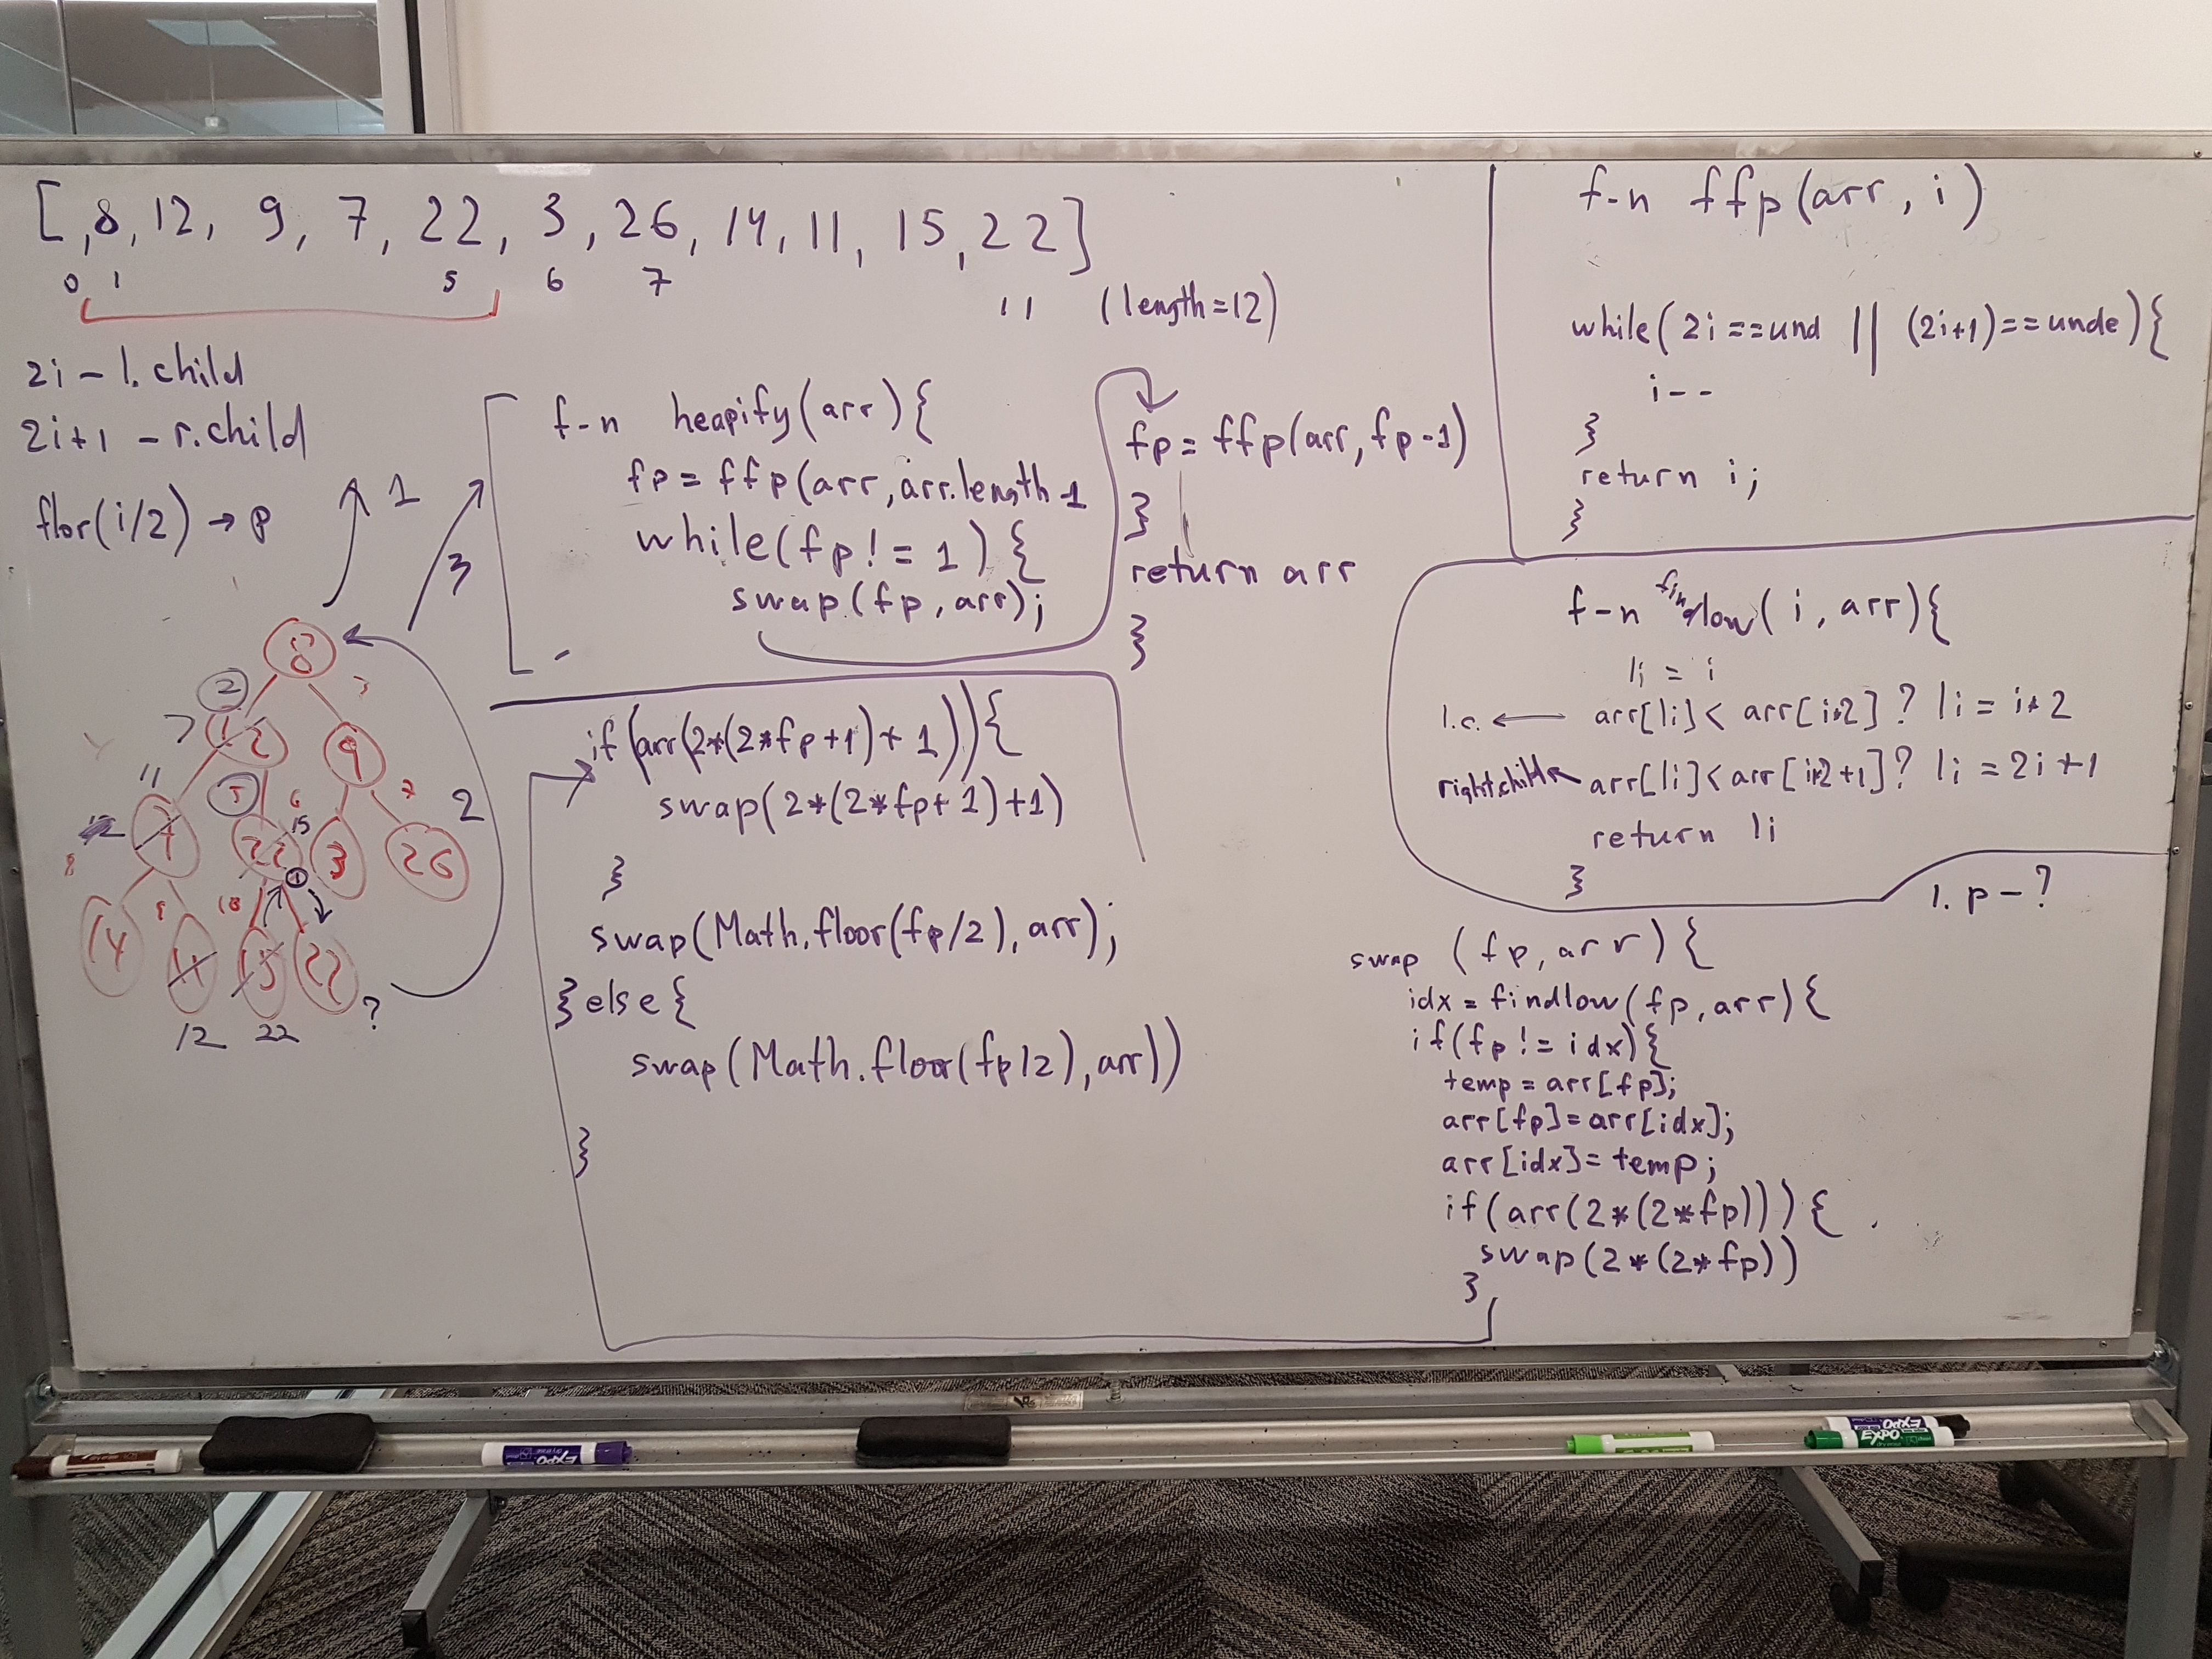 [ ,8, 12, 9, 7, 22, 3, 26, 14, 11, 15, 22]
0 1 5 6 7 11 (length=12)
2i - l.child
2i+1 - r.child
flor(i/2) → p
1
3
2
8
2
7 12 9
11 5 6 7
7 22 15 3 26
8 9 10
14 11 15 22 ?
12 22
f-n heapify(arr){
fp = ffp(arr, arr.length-1
while(fp != 1) {
swap(fp, arr);
fp = ffp(arr, fp-1)
}
return arr
}
if(arr(2*(2*fp+1)+1)){
swap(2*(2*fp+1)+1)
}
swap(Math.floor(fp/2), arr);
}else{
swap(Math.floor(fp/2), arr))
}
f-n ffp(arr, i)
while(2i==und || (2i+1)==unde){
i--
}
return i;
}
f-n findlow(i, arr){
li = i
l.c. ← arr[li] < arr[i*2] ? li = i*2
right.child ← arr[li] < arr[i*2+1] ? li = 2i+1
return li
}
1. p - ?
swap (fp, arr){
idx = findlow(fp, arr){
if(fp != idx){
temp = arr[fp];
arr[fp]=arr[idx];
arr[idx]= temp;
if(arr(2*(2*fp))){
swap(2*(2*fp))
}
EXPO
EXPO
EXPO